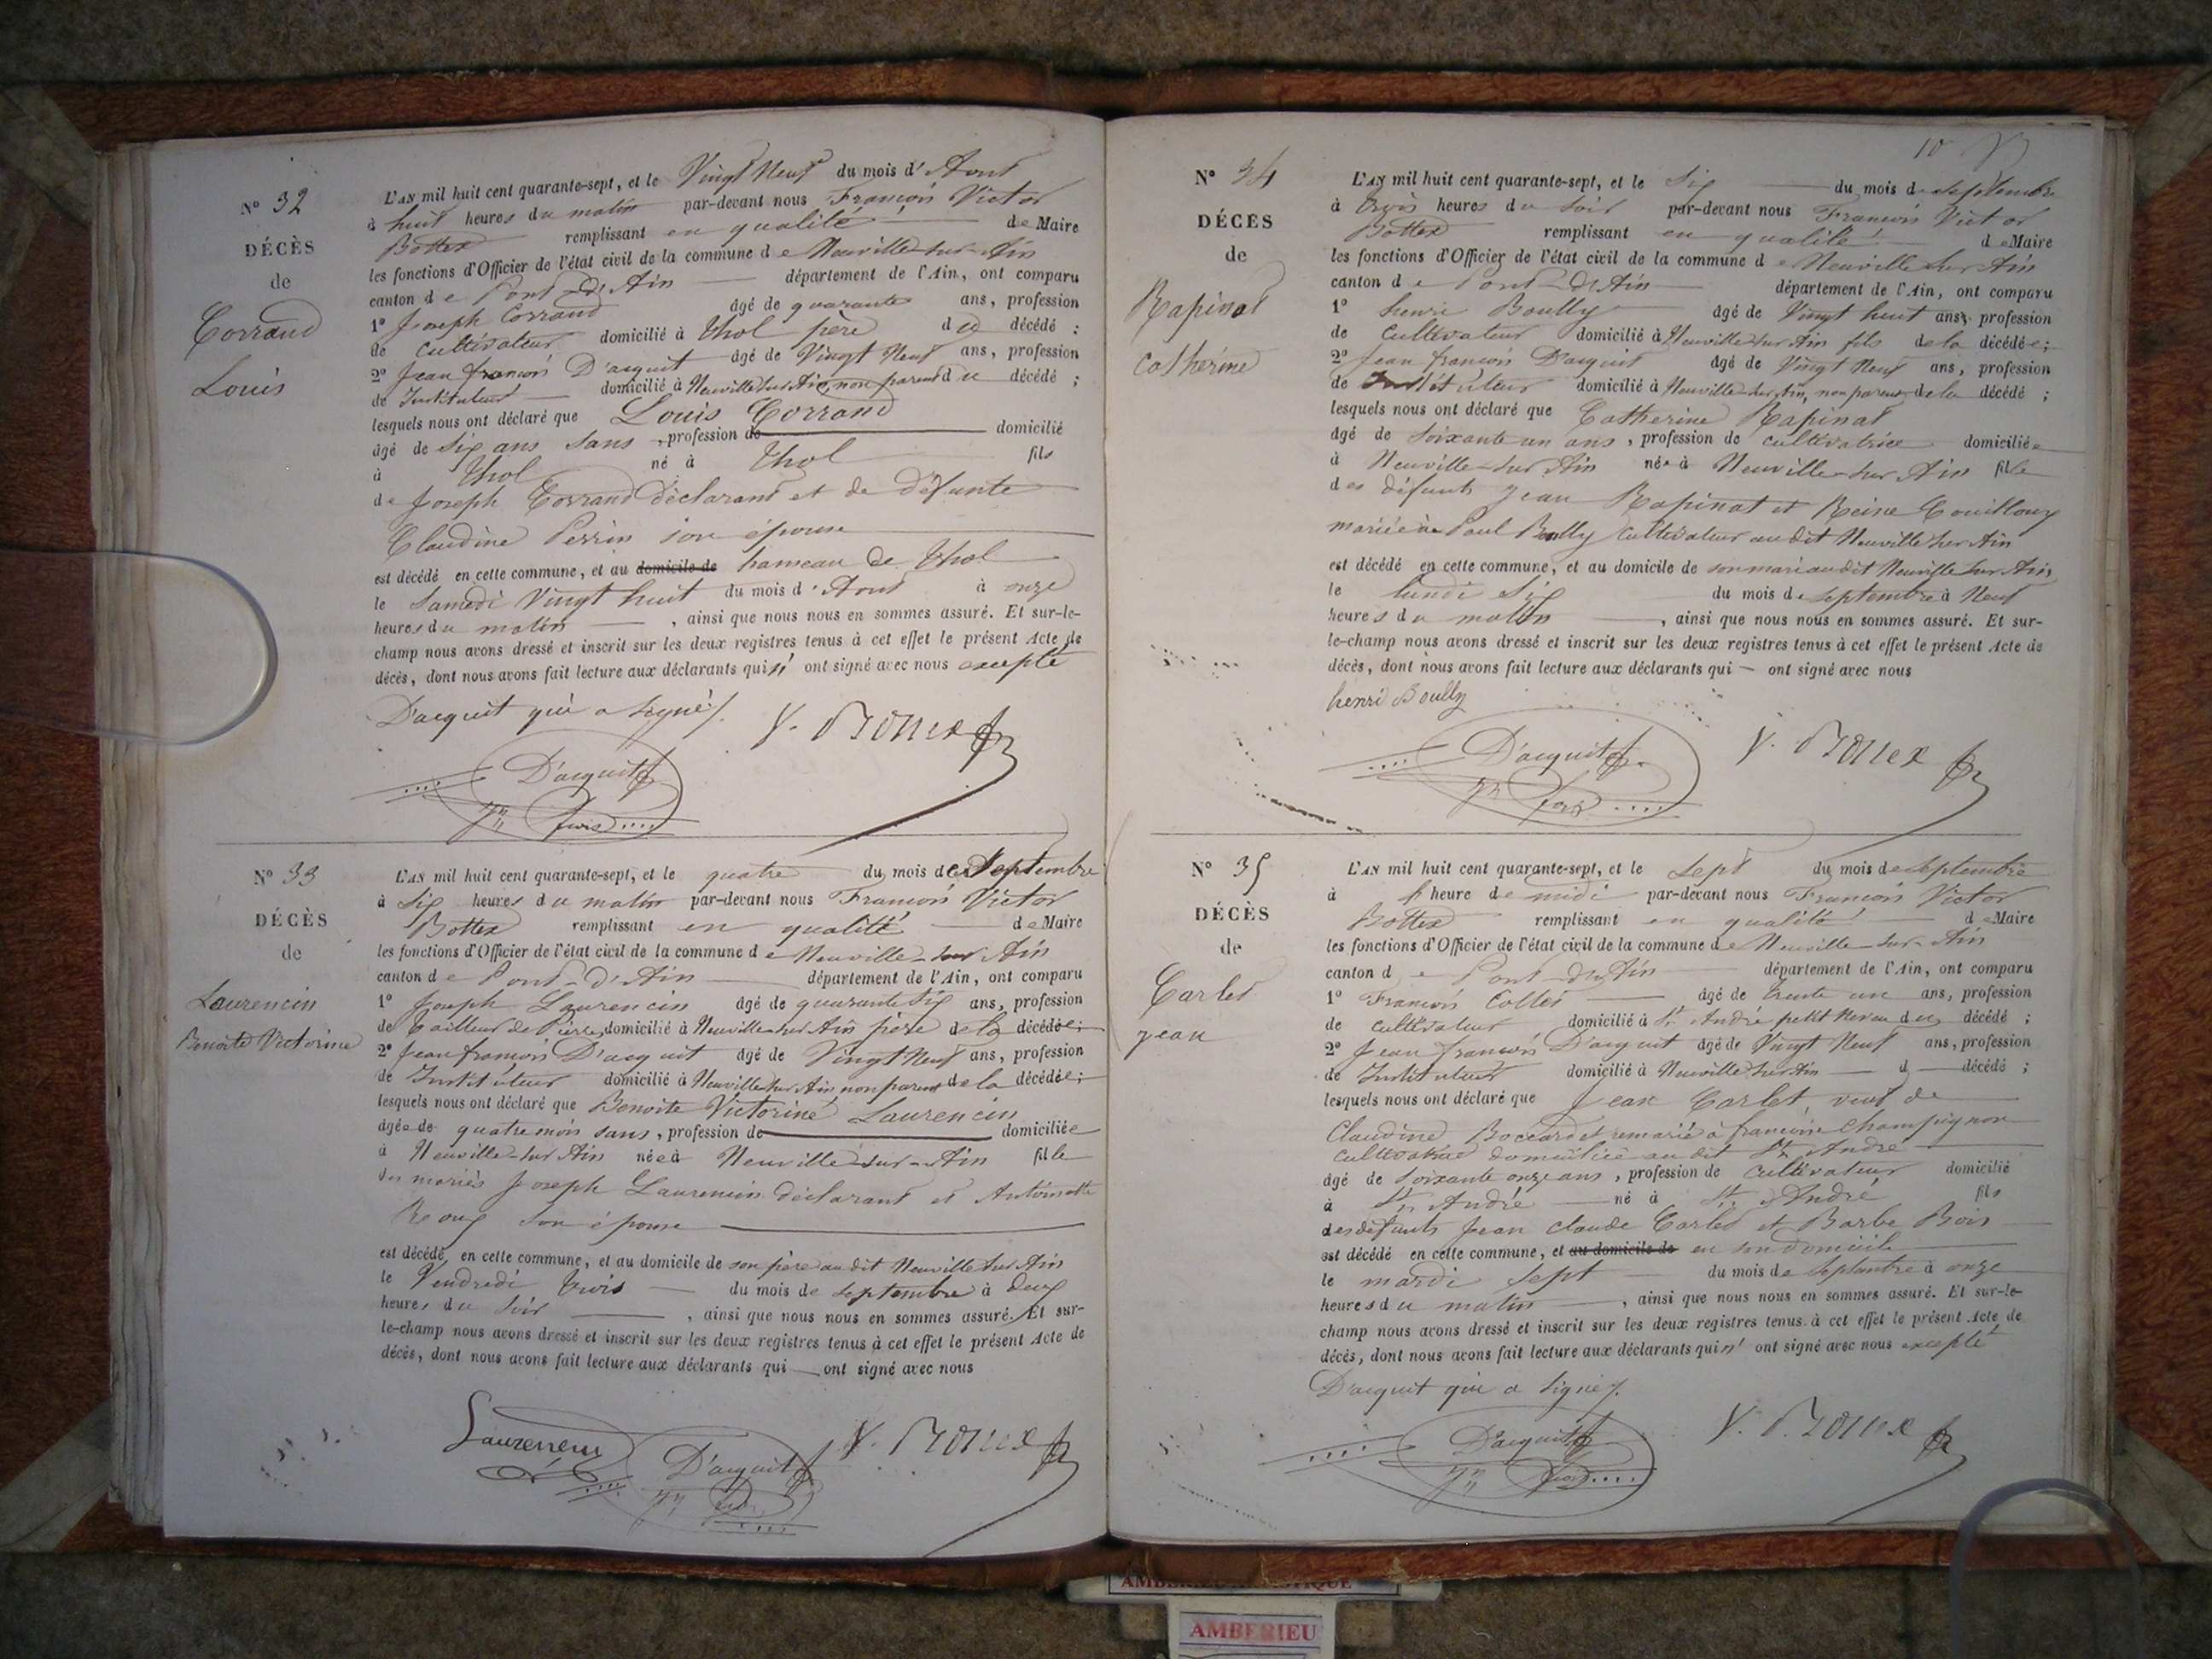 N° 32
DÉCÈS
de
Corrand
Louis
L'AN mil huit cent quarante-sept, et le Vingt Neuf du mois d'Aout
à huit heures du matin par-devant nous François Victor
Bottex remplissant en qualité de Maire
les fonctions d'Officier de l'état civil de la commune de Neuville-sur-Ain
canton de Pont-d'Ain département de l'Ain, ont comparu
1° Joseph Corrand âgé de quarante ans, profession
de cultivateur domicilié à Thol père du décédé ;
2° Jean françois D'acquit âgé de Vingt Neuf ans, profession
de Instituteur domicilié à Neuville sur Ain, non parent du décédé ;
lesquels nous ont déclaré que Louis Corrand
âgé de six ans sans profession de domicilié
à Thol né à Thol fils
de Joseph Corrand déclarant et de défunte
Claudine Perrin son épouse
est décédé en cette commune, et au domicile de hameau de Thol
le Samedi Vingt huit du mois d'Aout à onze
heures du matin , ainsi que nous nous en sommes assuré. Et sur-le-
champ nous avons dressé et inscrit sur les deux registres tenus à cet effet le présent Acte de
décès, dont nous avons fait lecture aux déclarants qui n' ont signé avec nous excepté
D'acquit qui a signé.
V. Bottex
D'acquit
Jn fois
N° 33
DÉCÈS
de
Laurencin
Benoite Victorine
L'AN mil huit cent quarante-sept, et le quatre du mois de Septembre
à six heures du matin par-devant nous François Victor
Bottex remplissant en qualité de Maire
les fonctions d'Officier de l'état civil de la commune de Neuville-sur Ain
canton de Pont-d'Ain département de l'Ain, ont comparu
1° Joseph Laurencin âgé de quarante six ans, profession
de tailleur de Pierre, domicilié à Neuville-sur Ain père de la décédée ;
2° Jean françois D'acquit âgé de Vingt Neuf ans, profession
de Instituteur domicilié à Neuville sur Ain, non parent de la décédée ;
lesquels nous ont déclaré que Benoite Victorine Laurencin
âgée de quatre mois sans , profession de domiciliée
à Neuville-sur Ain née à Neuville-sur-Ain fille
des mariés Joseph Laurencin déclarant et Antoinette
Reoux son épouse
est décédé en cette commune, et au domicile de son père au dit Neuville sur Ain
le Vendredi trois du mois de septembre à deux
heures du soir , ainsi que nous nous en sommes assuré. Et sur-
le-champ nous avons dressé et inscrit sur les deux registres tenus à cet effet le présent Acte de
décès, dont nous avons fait lecture aux déclarants qui ont signé avec nous
Laurencin
D'acquit
V. Bottex
10
N° 34
DÉCÈS
de
Rapinat
Catherine
L'AN mil huit cent quarante-sept, et le six du mois de septembre
à trois heures du soir par-devant nous François Victor
Bottex remplissant en qualité de Maire
les fonctions d'Officier de l'état civil de la commune de Neuville sur Ain
canton de Pont-d'Ain département de l'Ain, ont comparu
1° henri Boully âgé de Vingt huit ans, profession
de cultivateur domicilié à Neuville sur Ain fils de la décédée ;
2° Jean françois D'acquit âgé de Vingt Neuf ans, profession
de Instituteur domicilié à Neuville-sur Ain, non parent de la décédé ;
lesquels nous ont déclaré que Catherine Rapinat
âgé de soixante un ans , profession de cultivatrice domiciliée
à Neuville-sur Ain née à Neuville-sur Ain fille
des défunts Jean Rapinat et Reine Couilloux
mariée à Paul Boully cultivateur au dit Neuville sur Ain
est décédé en cette commune, et au domicile de son mari au dit Neuville sur Ain,
le lundi six du mois de septembre à Neuf
heures du matin , ainsi que nous nous en sommes assuré. Et sur-
le-champ nous avons dressé et inscrit sur les deux registres tenus à cet effet le présent Acte de
décès, dont nous avons fait lecture aux déclarants qui ont signé avec nous
henri Boully
D'acquit
V. Bottex
N° 35
DÉCÈS
de
Carlet
jean
L'AN mil huit cent quarante-sept, et le sept du mois de septembre
à l'heure de midi par-devant nous François Victor
Bottex remplissant en qualité de Maire
les fonctions d'Officier de l'état civil de la commune de Neuville-sur-Ain
canton de Pont-d'Ain département de l'Ain, ont comparu
1° François Collet âgé de trente un ans, profession
de cultivateur domicilié à St André petit Neveu du décédé ;
2° Jean françois D'acquit âgé de Vingt Neuf ans, profession
de Instituteur domicilié à Neuville sur Ain d décédé ;
lesquels nous ont déclaré que Jean Carlet, veuf de
Claudine Boccard et remarié à françoise Champignon
cultivatrice domiciliée au dit St André
âgé de soixante onze ans , profession de cultivateur domicilié
à St André né à St André fils
des défunts Jean Claude Carlet et Barbe Bois
est décédé en cette commune, et au domicile de en son domicile
le mardi sept du mois de Septembre à onze
heures du matin , ainsi que nous nous en sommes assuré. Et sur-le-
champ nous avons dressé et inscrit sur les deux registres tenus à cet effet le présent Acte de
décès, dont nous avons fait lecture aux déclarants qui n' ont signé avec nous excepté
D'acquit qui a signé.
D'acquit
V. Bottex
AMBERIEU